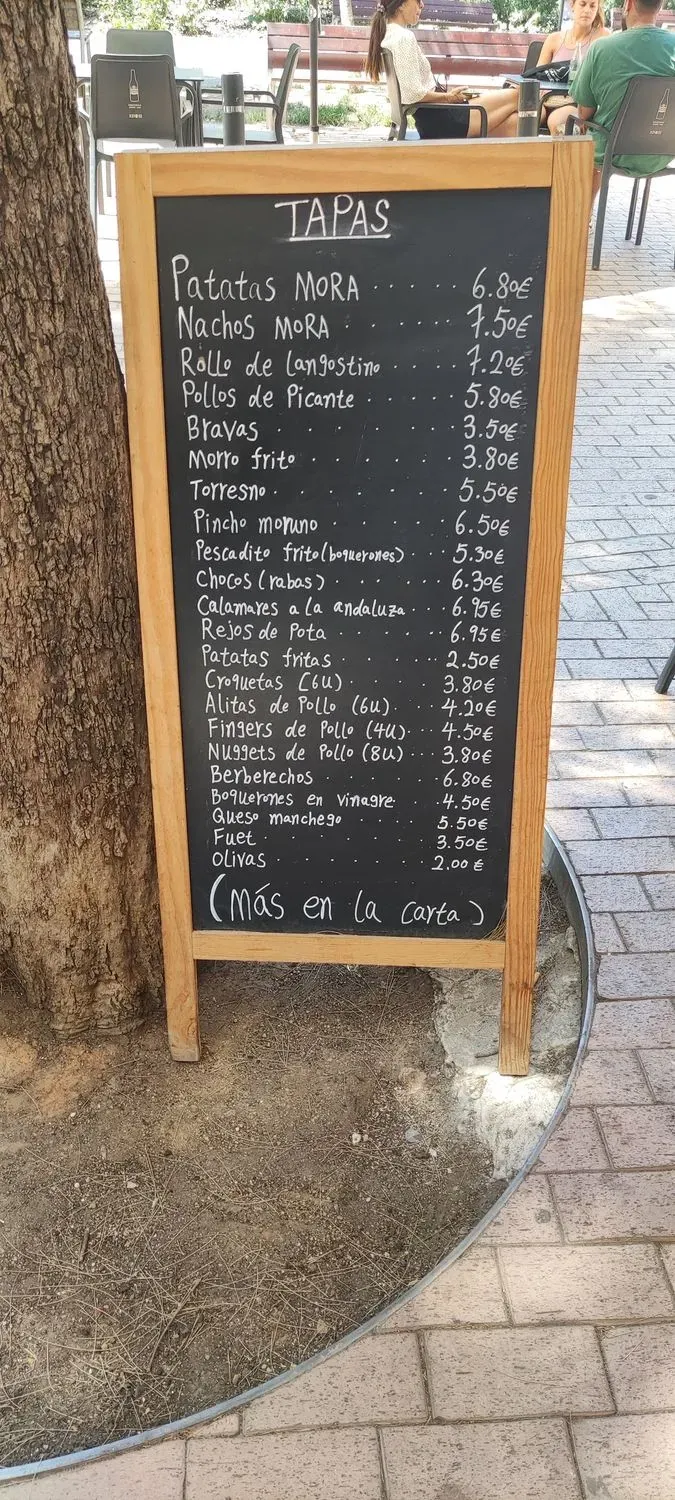 TAPAS
Patatas MORA ..... 6.80€
Nachos MORA ..... 7.50€
Rollo de langostino .... 7.20€
Pollos de Picante ..... 5.80€
Bravas ...... 3.50€
Morro frito ...... 3.80€
Torresno ...... 5.50€
Pincho moruno ..... 6.50€
Pescadito frito (boquerones) ... 5.30€
Chocos (rabas) ..... 6.30€
Calamares a la andaluza ... 6.95€
Rejos de Pota ..... 6.95€
Patatas fritas ...... 2.50€
Croquetas (6u) ..... 3.80€
Alitas de Pollo (6u) ... 4.20€
Fingers de Pollo (4u) ... 4.50€
Nuggets de Pollo (8u) ... 3.80€
Berberechos ...... 6.80€
Boquerones en vinagre .. 4.50€
Queso manchego ..... 5.50€
Fuet ....... 3.50€
Olivas ...... 2.00€
(Más en la carta)